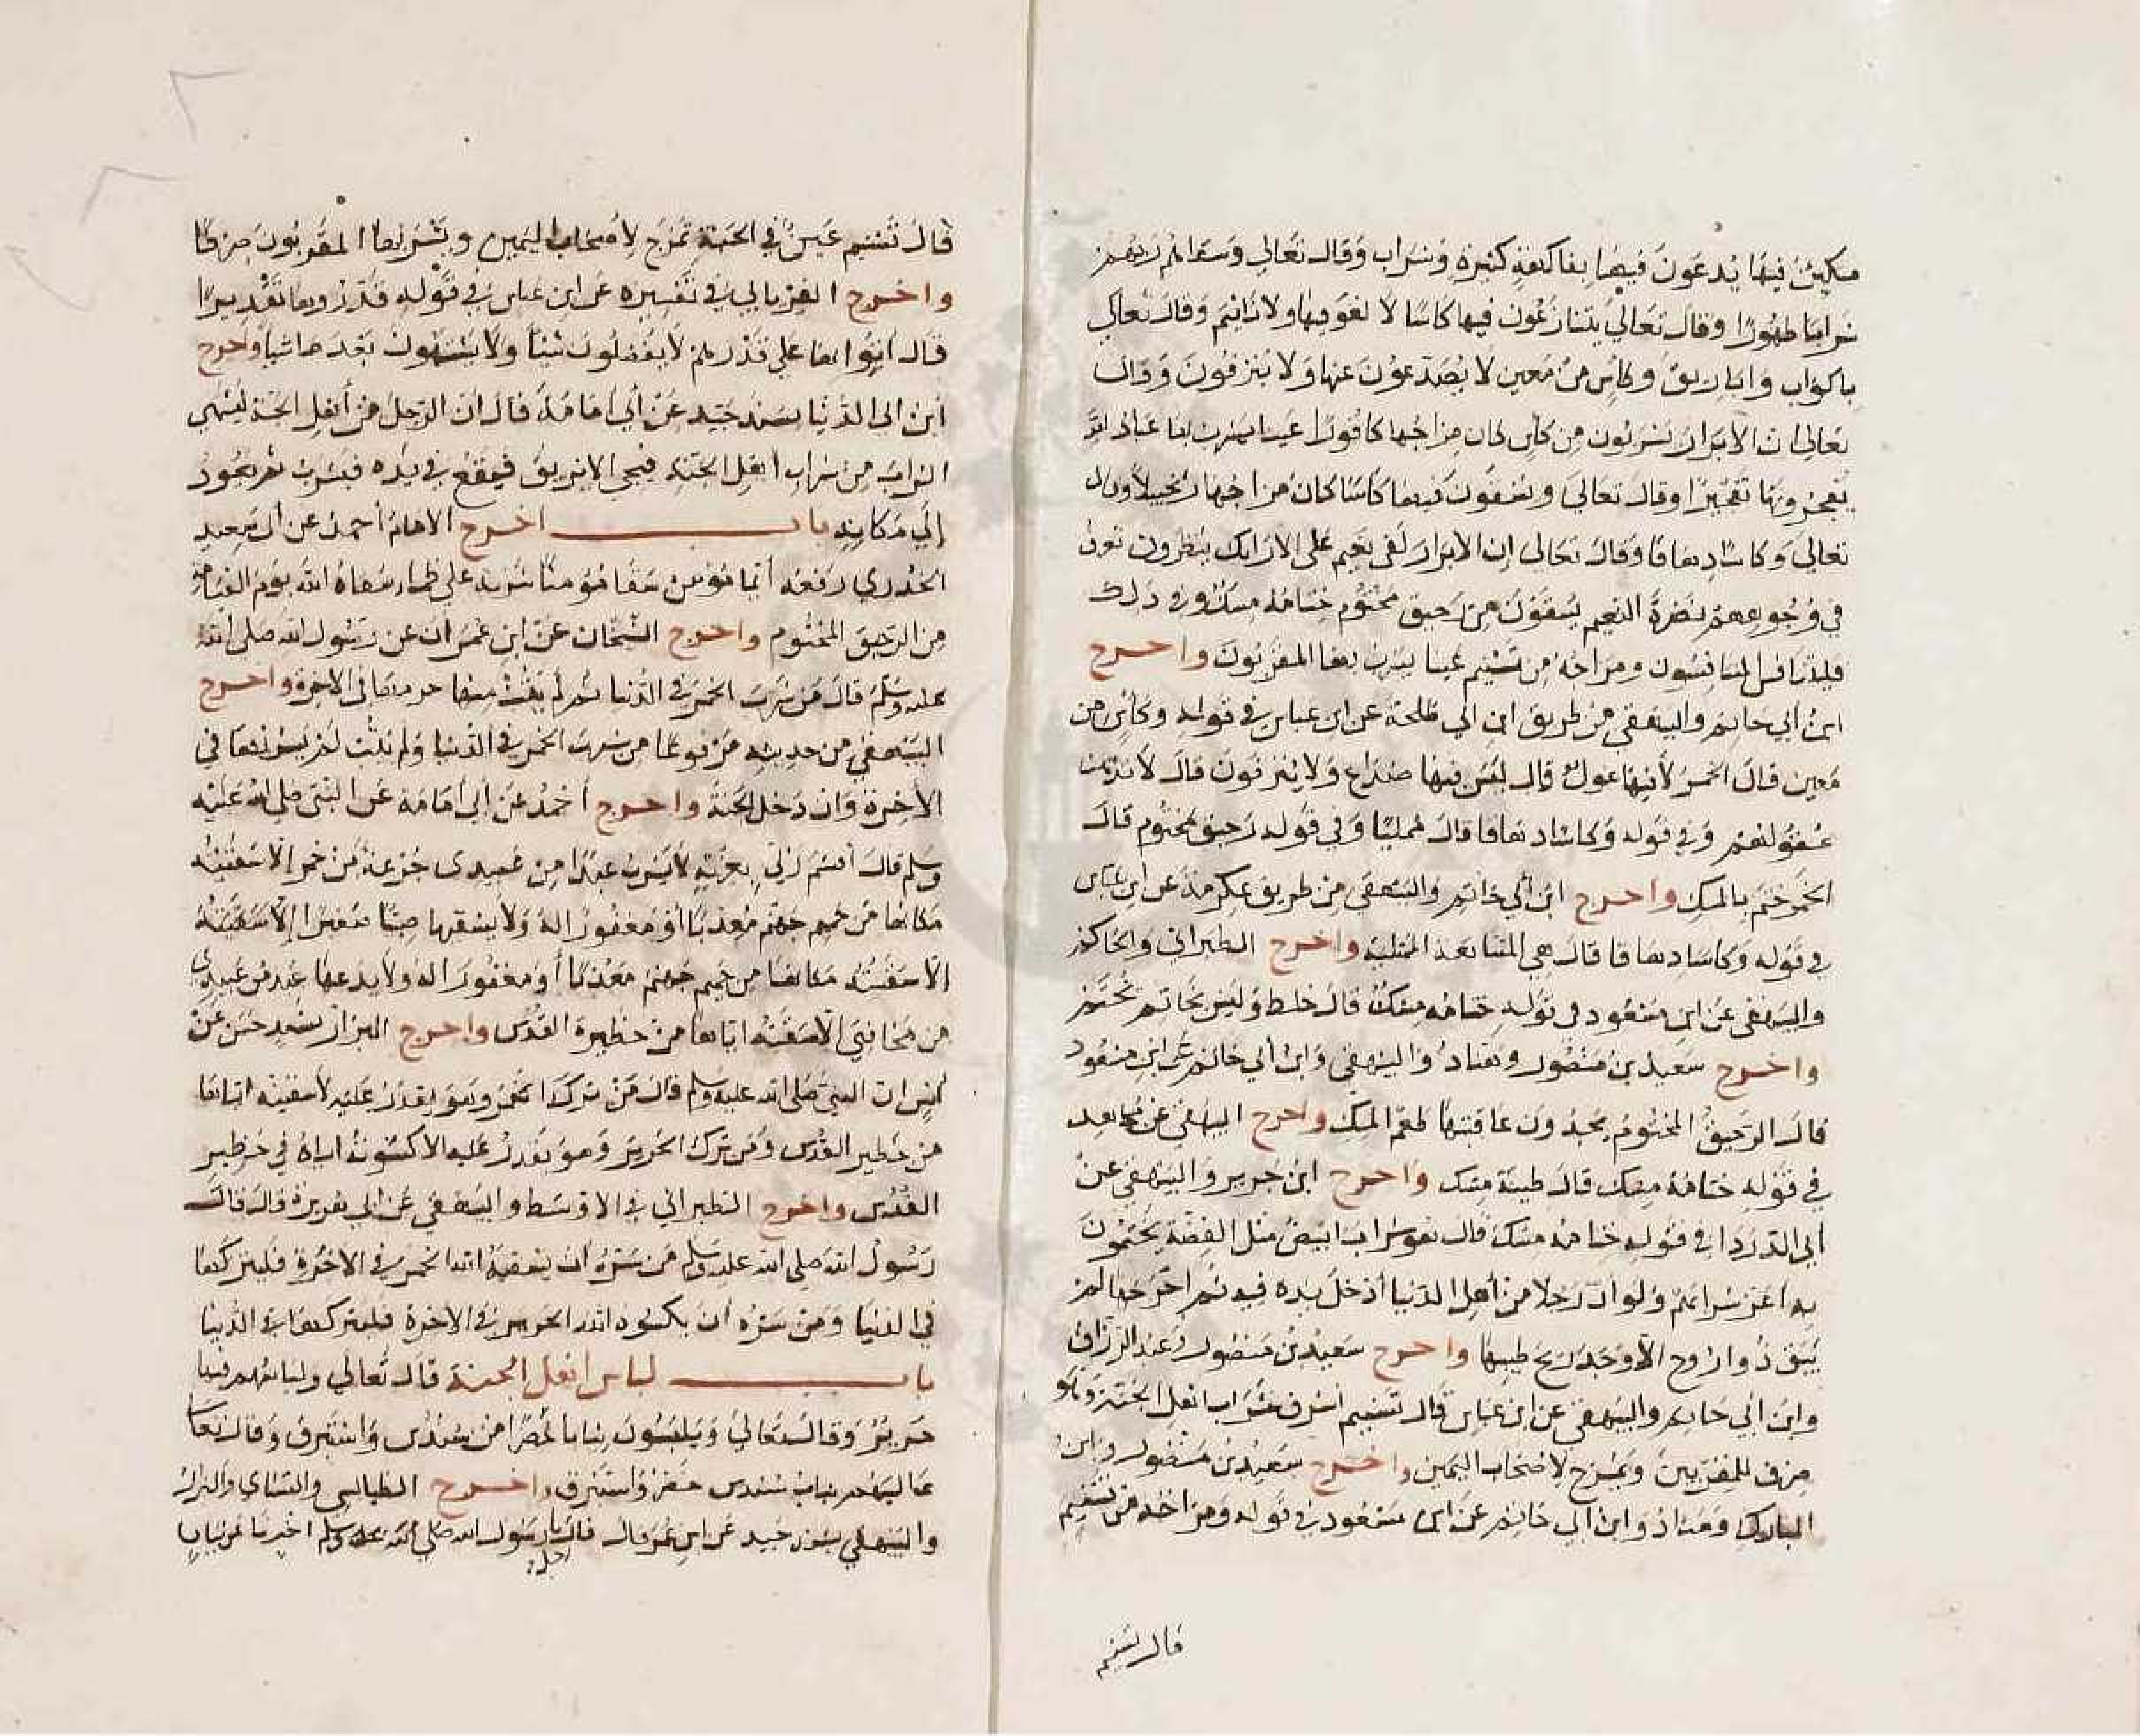 متكين فيها يدعون فيها بفاكهة كثيرة وشراب وقال تعالي وسقاهم ربهم
شرابا طهورا وقال تعالي يتنازعون فيها كاسا لا لغو فيها ولا تاثيم وقال تعالي
باكواب واباريق وكاس من معين لا يصدعون عنها ولا ينزفون وقال
تعالي ان الابرار يشربون من كاس كان مزاجها كافورا عينا يشرب بها عباد الله
يفجرونها تفجيرا وقال تعالي ويسقون فيها كاسا كان مزاجها زنجبيلا وقال
تعالي وكاسا دهاقا وقال تعالي ان الابرار لفي نعيم علي الارائك ينظرون تعرف
في وجوههم نضرة النعيم يسقون من رحيق مختوم ختامه مسك وفي ذلك
فليتنافس المتنافسون ومزاجه من تسنيم عينا يشرب بها المقربون واخرج
ابن ابي حاتم والبيهقي من طريق ابن ابي طلحة عن ابن عباس في قوله وكاس من
معين قال الخمر لا فيها غول قال ليس فيها صداع ولا ينزفون قال لا تذهب
عقولهم وفي قوله وكاسا دهاقا قال ممليا وفي قوله رحيق مختوم قال
الخمر ختم بالمسك واخرج ابن ابي حاتم والبيهقي من طريق عكرمة عن ابن عباس
في قوله وكاسا دهاقا قال هي المتتابعة الممتلية واخرج الطبراني والحاكم
والبيهقي عن ابن مسعود في قوله ختامه مسك قال خلط وليس بخاتم يختم
واخرج سعيد بن منصور وهناد والبيهقي وابن أبي حاتم عن ابن مسعود
قال الرحيق المختوم يجدون عاقبتها طعم المسك واخرج البيهقي عن مجاهد
في قوله ختامه مسك قال طينة مسك واخرج ابن جرير والبيهقي عن
أبي الدردا في قوله ختامه مسك قال هو شراب ابيض مثل الفضة يختمون
به اخر شرابهم ولو ان رجلا من أهل الدنيا أدخل يده فيه ثم اخرجها لم
يبق ذوا روح الا وجد ريح طيبها واخرج سعيد بن منصور وعبد الرزاق
وابن ابي حاتم والبيهقي عن ابن عباس قال تسنيم أشرف شراب اهل الجنة وهو
صرف للمقربين ويمزج لاصحاب اليمين واخرج سعيد بن منصور وابن
المبارك وهناد وابن ابي حاتم عن ابن مسعود في قوله ومزاجه من تسنيم
قال تسنيم
قال تسنيم عين في الجنة تمزج لأصحاب اليمين ويشربها المقربون صرفا
واخرج الفريابي في تفسيره عن ابن عباس في قوله قدروها تقديرا
قال أتوا بها علي قدرهم لا يفضلون شيا ولا يشتهون بعدها شيا واخرج
ابن ابي الدنيا بسند جيد عن أبي امامة قال ان الرجل من أهل الجنة ليشتهي
الشراب من شراب أهل الجنة فيجي الابريق فيقع في يده فيشرب ثم يعود
إلي مكانه باب اخرج الامام أحمد عن أبي سعيد
الخدري رفعه أيما مؤمن سقا مؤمنا شربة علي ظما سقاه الله يوم القيامة
من الرحيق المختوم واخرج الشيخان عن ابن عمر ان عن رسول الله صلي الله
عليه وسلم قال من شرب الخمر في الدنيا ثم لم يتب منها حرمها في الاخرة واخرج
البيهقي من حديثه مرفوعا من شرب الخمر في الدنيا ولم يتب لم يشربها في
الاخرة وان دخل الجنة واخرج أحمد عن أبي امامة عن النبي صلي الله عليه
وسلم قال أقسم ربي بعزته لا يشرب عبد من عبيدي جرعة من خمر الا سقيته
مكانها من حميم جهنم معذبا أو مغفورا له ولا يسقيها صبيا صغيرا إلا سقيته
الا سقيته مكانها من حميم جهنم معذبا أو مغفورا له ولا يدعها عبد من عبيدي
من مخافتي الا سقيته اياها من حظيرة القدس واخرج البزار بسند حسن عن
أنس ان النبي صلي الله عليه وسلم قال من ترك الخمر وهو يقدر عليه لاسقينه اياها
من حظير القدس ومن ترك الحرير وهو يقدر عليه الا كسوته اياه في حظير
القدس واخرج الطبراني في الاوسط والبيهقي عن ابي هريرة قال قال
رسول الله صلي الله عليه وسلم من سره أن يسقيه الله الخمر في الاخرة فليتركها
في الدنيا ومن سره أن يكسوه الله الحرير في الاخرة فليتركها في الدنيا
باب لباس اهل الجنة قال تعالي ولباسهم فيها
حرير وقال تعالي ويلبسون ثيابا خضرا من سندس واستبرق وقال تعا
عاليهم ثياب سندس خضر واستبرق واخرج الطيالسي والنساي والبزار
والبيهقي بسند جيد عن ابن عمر قال قال رجل يا رسول الله صلي الله عليه وسلم اخبرنا عن ثياب